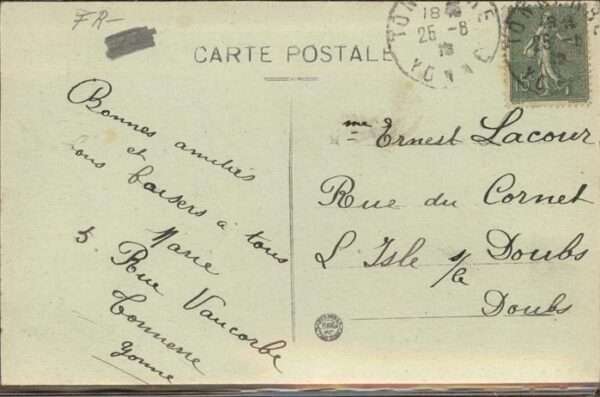 FR-
CARTE POSTALE
TONNERRE
18
25 -8
YONNE
Bonnes amitiés
et
bons baisers à tous
Marie
5. Rue Vaucorbe
Tonnerre
Yonne
Mme Ernest Lacour
Rue du Cornet
L'Isle s/le Doubs
Doubs